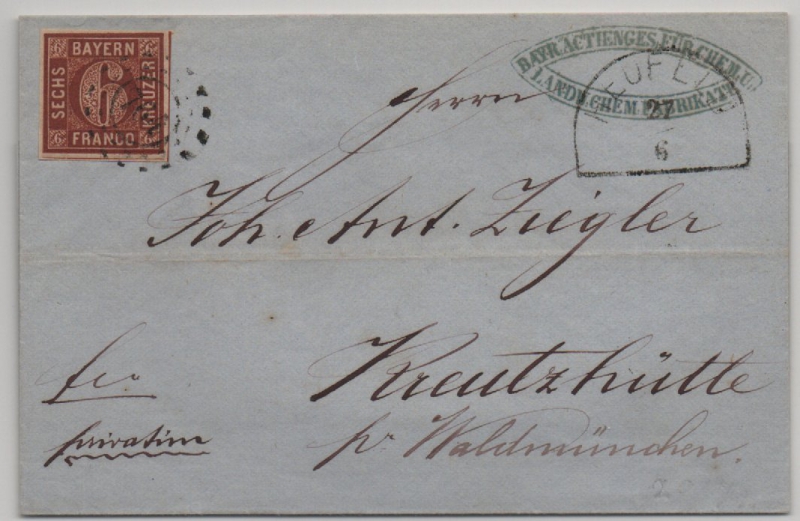 BAYERN
SECHS
6
KREUZER
FRANCO
BAYR. ACTIENGES. FÜR CHEM. U.
LANDW. CHEM. FABRIKATE
NEUFELD
27
6
Herrn
Joh. Ant. Ziegler
fco
Kreutzhütte
privatim
pr Waldmünchen.